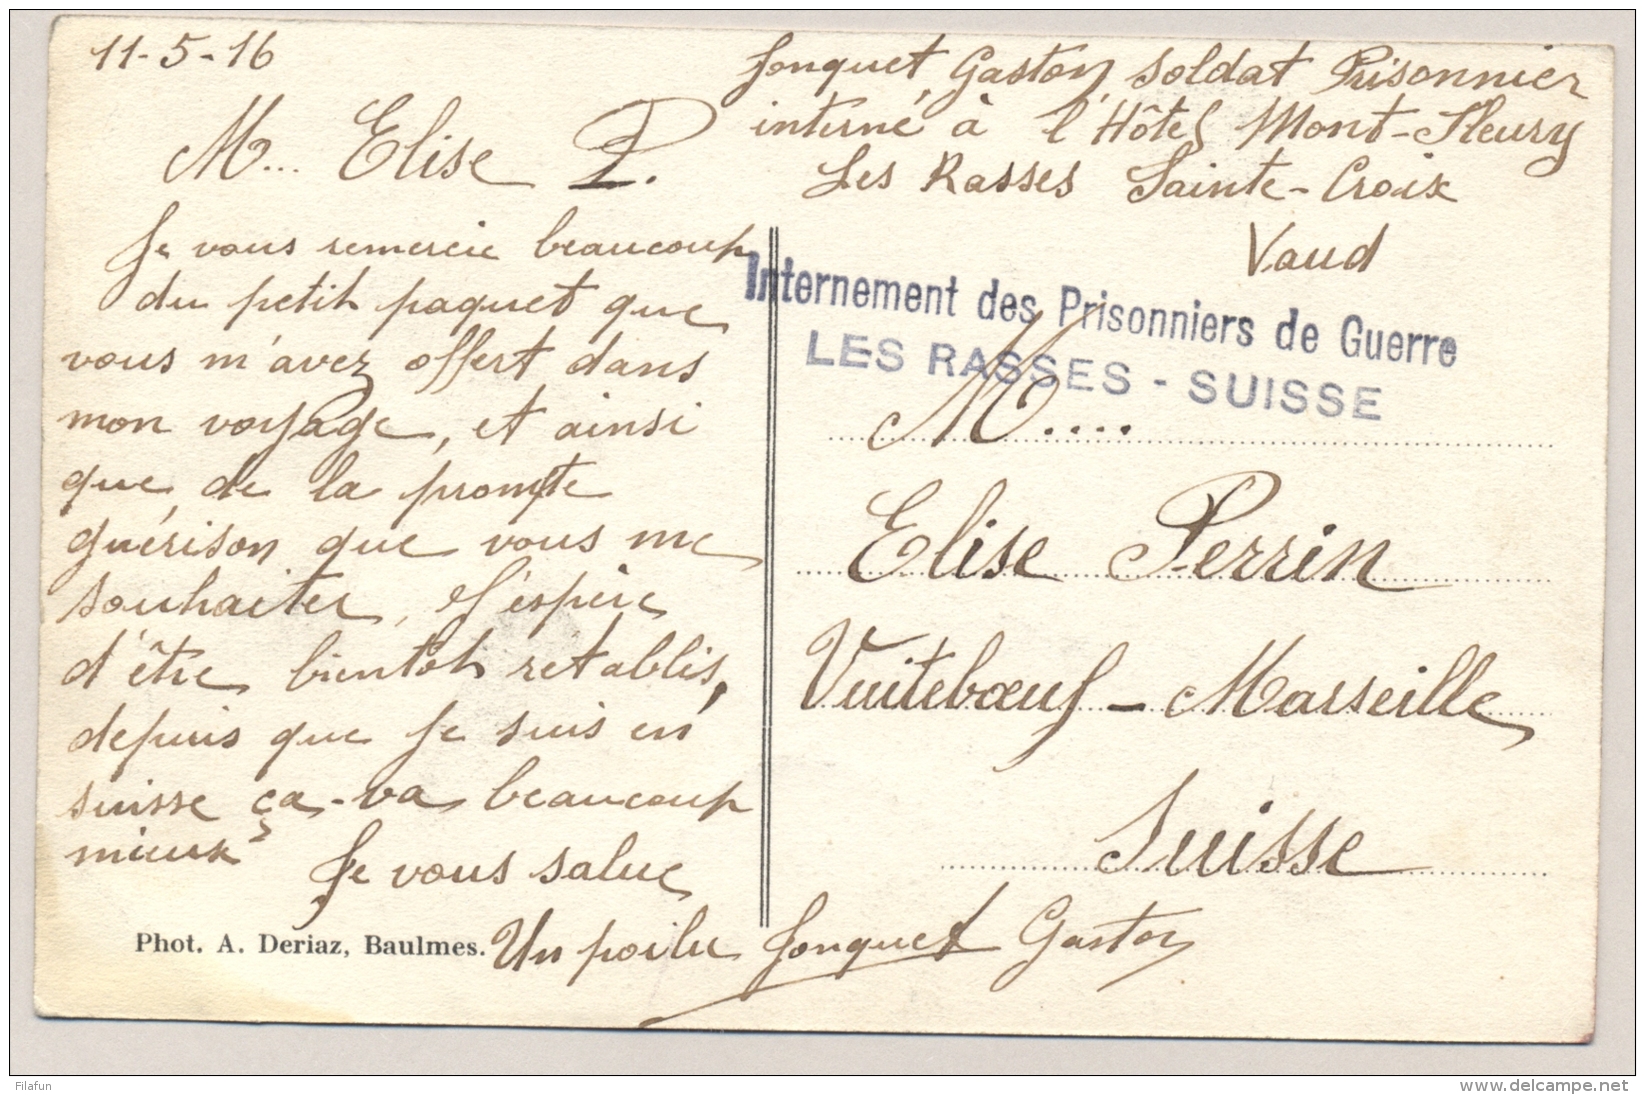 11-5-16
M... Elise P.
Je vous remercie beaucoup
du petit paquet que
vous m'avez offert dans
mon voyage, et ainsi
que de la prompte
guérison que vous me
souhaiter, et j'espère
d'être bientôt retablis,
depuis que je suis en
suisse ça-va beaucoup
mieux
Je vous salue
Un poilu Jonquet Gaston
Phot. A. Deriaz, Baulmes.
Jonquet, Gaston, soldat Prisonnier
interné à l'Hôtel Mont-Fleury
Les Rasses Sainte-Croix
Vaud
Internement des Prisonniers de Guerre
LES RASSES - SUISSE
M....
Elise Perrin
Vuiteboeuf - Marseille
Suisse
Filafun
www.delcampe.net